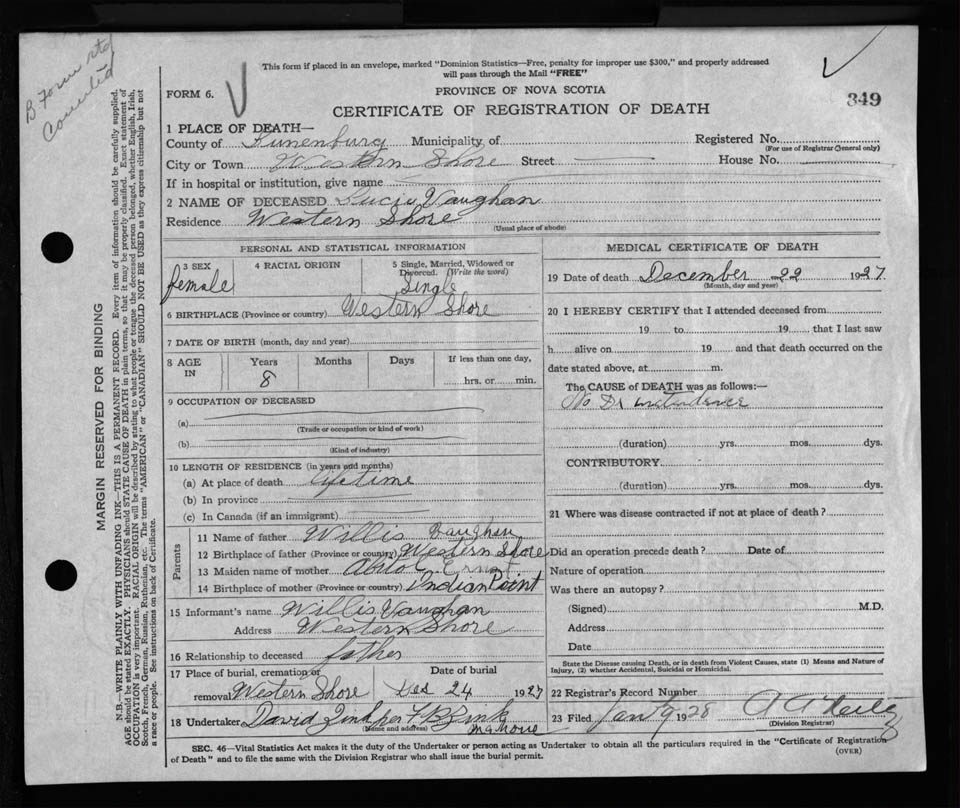 B Form rtd
This form if placed in an envelope, marked "Dominion Statistics—Free, penalty for improper use $300," and properly addressed
will pass through the Mail "FREE"
FORM 6.
PROVINCE OF NOVA SCOTIA
349
CERTIFICATE OF REGISTRATION OF DEATH
1 PLACE OF DEATH—
County of Lunenburg Municipality of
Registered No.
(For use of Registrar General only)
City or Town Western Shore Street
House No.
If in hospital or institution, give name
2 NAME OF DECEASED Lucie Vaughan
Residence Western Shore
(Usual place of abode)
PERSONAL AND STATISTICAL INFORMATION
3 SEX
female
4 RACIAL ORIGIN
5 Single, Married, Widowed or
Divorced. (Write the word)
Single
6 BIRTHPLACE (Province or country) Western Shore
7 DATE OF BIRTH (month, day and year)
8 AGE
IN
Years
8
Months
Days
If less than one day,
hrs. or min.
9 OCCUPATION OF DECEASED
(a)
(Trade or occupation or kind of work)
(b)
(Kind of industry)
10 LENGTH OF RESIDENCE (in years and months)
(a) At place of death lifetime
(b) In province
(c) In Canada (if an immigrant)
Parents
11 Name of father Willis Vaughan
12 Birthplace of father (Province or country) Western Shore
13 Maiden name of mother Ernst
14 Birthplace of mother (Province or country) Indian Point
15 Informant's name Willis Vaughan
Address Western Shore
16 Relationship to deceased father
17 Place of burial, cremation or
Date of burial
removal Western Shore Dec 24 1927
18 Undertaker David Zink per F B Zink
(Name and address) Mahone
MEDICAL CERTIFICATE OF DEATH
19 Date of death December 22 1927
(Month, day and year)
20 I HEREBY CERTIFY that I attended deceased from
19 to 19 that I last saw
h alive on 19 and that death occurred on the
date stated above, at m.
The CAUSE of DEATH was as follows:—
No Dr
(duration) yrs. mos. dys.
CONTRIBUTORY
(duration) yrs. mos. dys.
21 Where was disease contracted if not at place of death?
Did an operation precede death? Date of
Nature of operation
Was there an autopsy?
(Signed) M.D.
Address
Date
State the Disease causing Death, or in death from Violent Causes, state (1) Means and Nature of
Injury, (2) whether Accidental, Suicidal or Homicidal.
22 Registrar's Record Number
23 Filed Jan 9 1928
(Division Registrar)
SEC. 46—Vital Statistics Act makes it the duty of the Undertaker or person acting as Undertaker to obtain all the particulars required in the "Certificate of Registration
of Death" and to file the same with the Division Registrar who shall issue the burial permit.
(OVER)
MARGIN RESERVED FOR BINDING
N.B.—WRITE PLAINLY WITH UNFADING INK—THIS IS A PERMANENT RECORD. Every item of information should be carefully supplied.
AGE should be stated EXACTLY. PHYSICIANS should STATE CAUSE OF DEATH in plain terms, so that it may be properly classified. Exact statement of
OCCUPATION is very important. RACIAL ORIGIN will be described by stating to what people or tongue the deceased person belonged, whether English, Irish,
Scotch, French, German, Russian, Ruthenian, etc. The terms "AMERICAN" or "CANADIAN" SHOULD NOT BE USED as they express citizenship but not
a race or people. See instructions on back of Certificate.